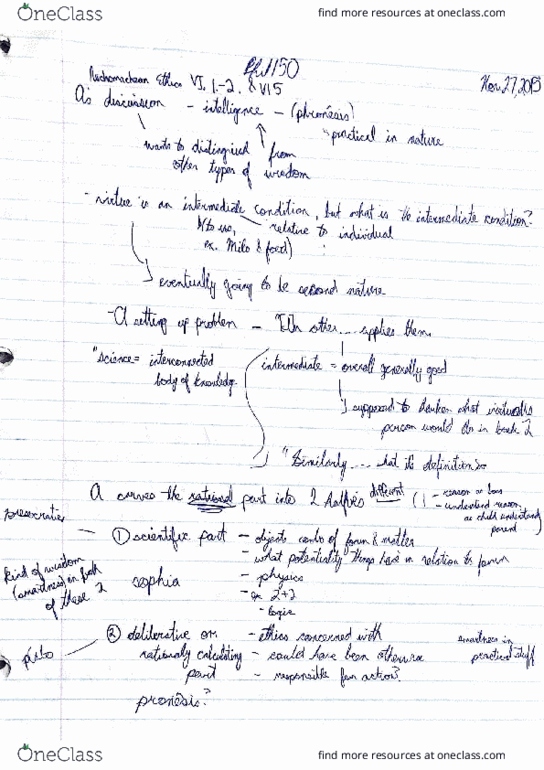 OneClass
find more resources at oneclass.com
PHL150
Nichomachean Ethics VI, 1-2, & VI 5
Nov. 27, 2015
A's discussion - intelligence - (phronesis)
practical in nature
wants to distinguish from
other types of wisdom
- virtue is an intermediate condition, but what is the intermediate condition?
relative to individual
ex. Milo & food)
eventually going to be second nature
- A setting up problem - "In other... applies then.
"science = interconnected
body of knowledge
intermediate = overall generally good
supposed to what virtuous
person would do in book 2
"Similarly... what its definition is
A carves the rational part into 2 halfies different
- reason or
- understand reason,
as child understand
parent
① scientific part - objects of form & matter
- what potentiality things have in relation to form
sophia - physics
- ex 2+2
- logic
kind of wisdom
(smartness) in
of these 2
② deliberative or - ethics concerned with
rationally calculating - could have been otherwise
part - responsible for action?
smartness in
practical stuff
pronesis?
OneClass
find more resources at oneclass.com